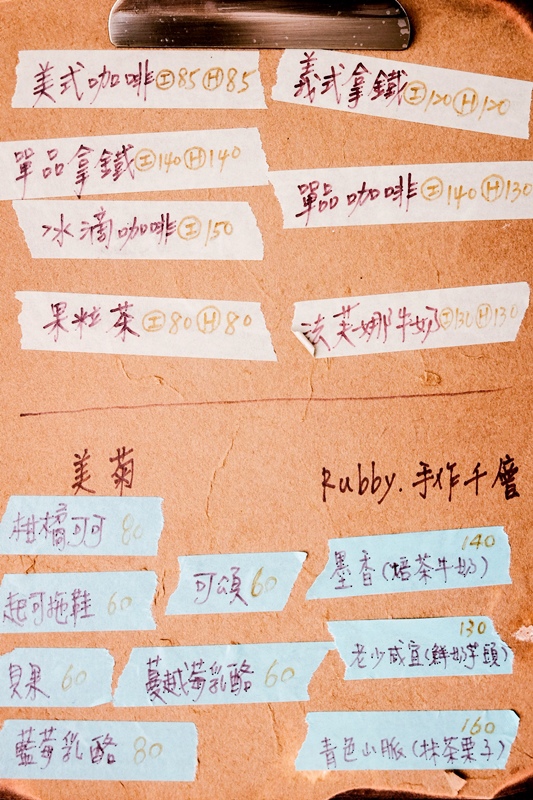 美式咖啡 I 85 H 85
義式拿鐵 I 120 H 120
單品拿鐵 I 140 H 140
單品咖啡 I 140 H 130
冰滴咖啡 I 150
果粒茶 I 80 H 80
法芙娜牛奶 I 130 H 130
美菊
柑橘可可 80
起司拖鞋 60
可頌 60
貝果 60
蔓越莓乳酪 60
藍莓乳酪 80
Rubby.手作千層
140
墨香(焙茶牛奶)
130
老少咸宜(鮮奶芋頭)
160
青色山脈(抹茶栗子)